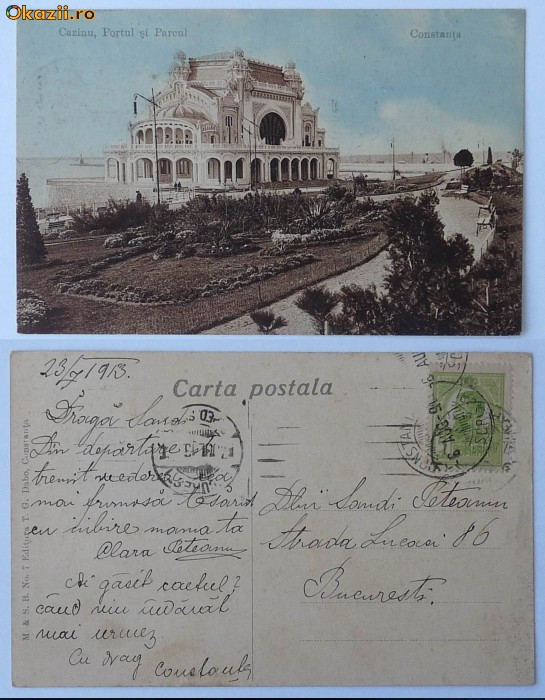 Okazii.ro
Cazinu, Portul și Parcul
Constanța
23/7 1913.
Carta postala
Dragă Sandi
Din depărtare
trimit vederea cea
mai frumosă
cu iubire mama ta
Clara Peteanu
Ai găsit caetul?
când viu îndărăt
mai urmez
Cu drag Constanța
Dlui Sandi Peteanu
Strada Lucaci 86
București.
M. & S. B. No. 7 Editura T. G. Dabo, Constanța
CONSTANȚA